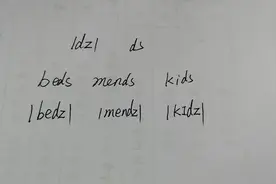 |dz| ds
beds mends kids
|bedz| |mendz| |kɪdz|